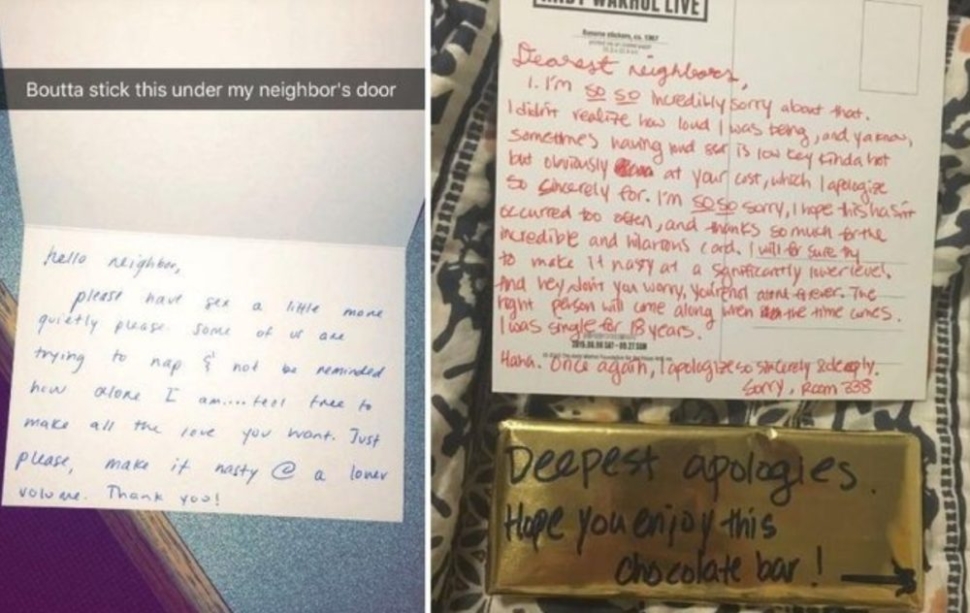 Boutta stick this under my neighbor's door
hello neighbor,
please have sex a little more
quietly please. some of us are
trying to nap & not be reminded
how alone I am.... feel free to
make all the love you want. Just
please, make it nasty @ a lower
volume. Thank you!
ANDY WARHOL LIVE
Dearest neighbors,
1. I'm so so incredibly sorry about that.
I didn't realize how loud I was being, and ya know,
sometimes having loud sex is low key kinda hot
but obviously at your cost, which I apologize
so sincerely for. I'm so so sorry, I hope this hasn't
occurred too often, and thanks so much for the
incredible and hilarious card. I will for sure try
to make it nasty at a significantly lower level.
And hey, don't you worry, you're not alone forever. The
right person will come along when the time comes.
I was single for 18 years.
Haha. Once again, I apologize so sincerely & deeply.
Sorry, Room 338
Deepest apologies.
Hope you enjoy this
chocolate bar!